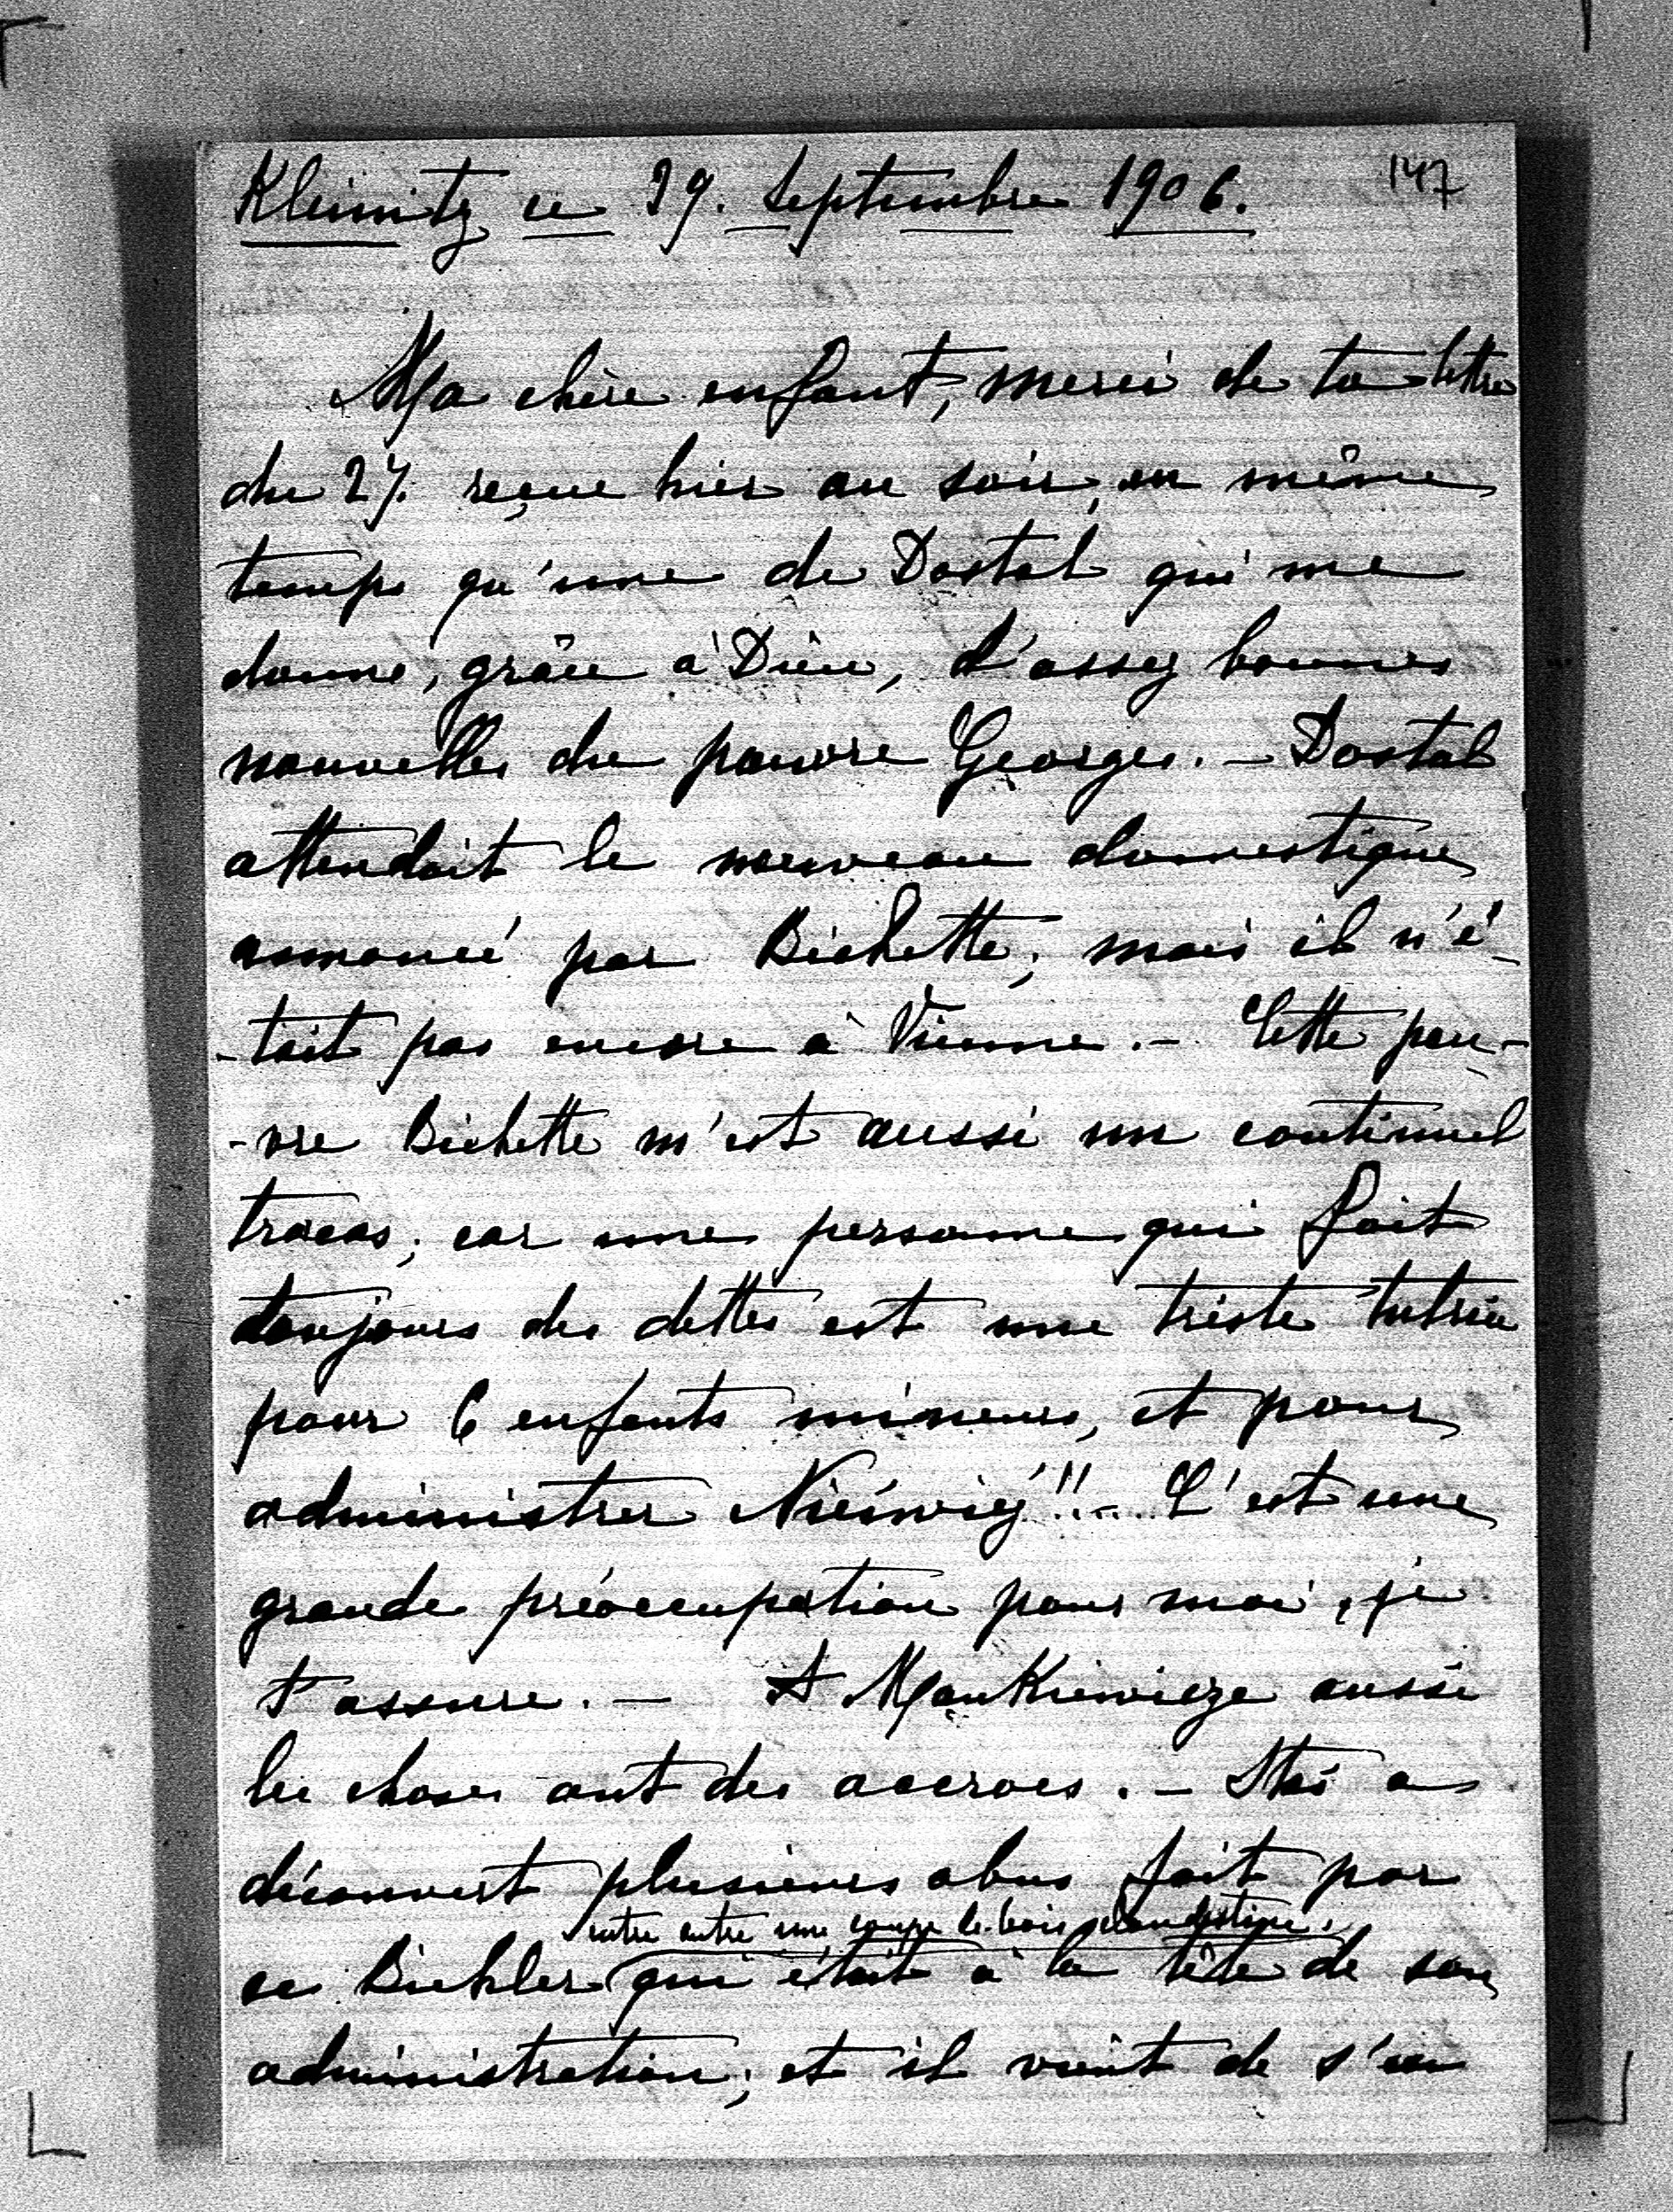 147
Kleinitz ce 29. Septembre 1906.
Ma chère enfant, merci de ta lettre
du 27. reçue hier au soir, en même
temps qu'une de Dostal qui me
donne, grâce à Dieu, d'assez bonnes
nouvelles du pauvre Georges. — Dostal
attendait le nouveau domestique
annoncé par Bichette; mais il n'é-
-tait pas encore à Vienne. — Cette pau-
-vre Bichette m'est aussi un continuel
tracas; car une personne qui fait
toujours des dettes est une triste tutrice
pour 6 enfants mineurs, et pour
administrer Nieświez!! — C'est une
grande préoccupation pour moi, je
t'assure. — A Mankiewicze aussi
les choses ont des accrocs. — Staś a
découvert plusieurs abus fait par
entre autre une coupe de bois clandestine,
ce Bichler qui était à la tête de son
administration; et il vient de s'en